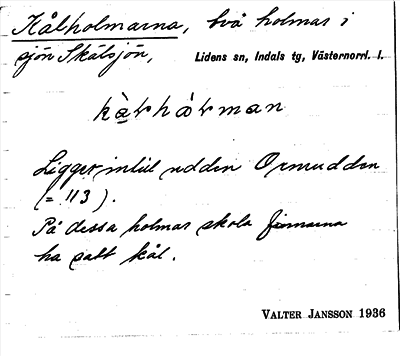 Kålholmarna, två holmar i
sjön Skälsjön, Lidens sn, Indals tg, Västernorrl. l.
kàḷhòḷman
Ligger intill udden Ormudden
(= 113).
På dessa holmar skola finnarna
ha satt kål.
VALTER JANSSON 1936